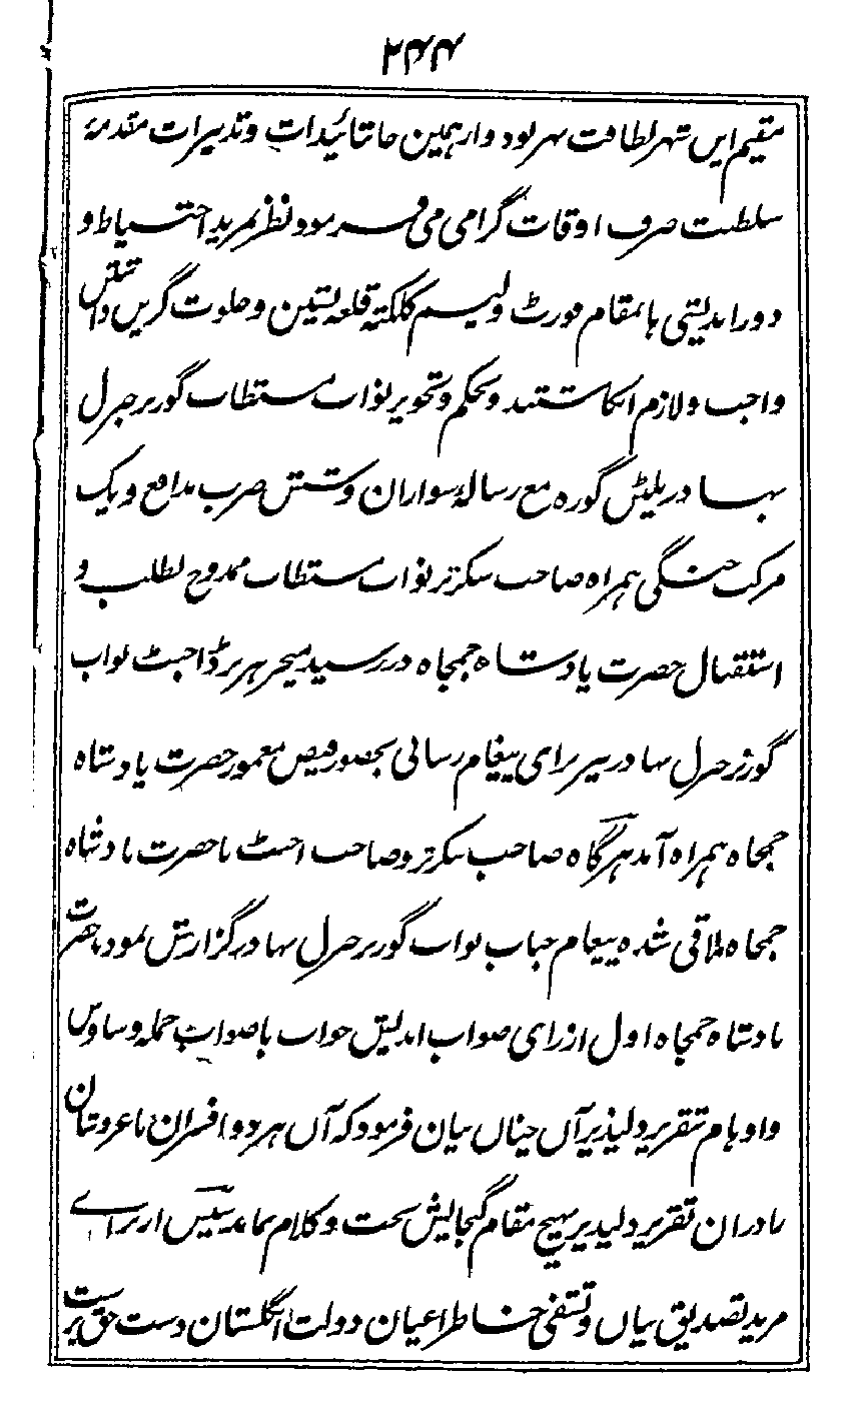 ۲۴۴
مقیم این شهر لطافت بهر بود و از همین جا تائیدات و تدبیرات مقدمهٔ
سلطنت صرف اوقات گرامی می فرمود نظر بمزید احتیاط و
دور اندیشی ها بمقام فورٹ ولیم کلکته قلعه نشین و خلوت گزین داشتن
واجب و لازم انگاشتند و بحکم و تجویز نواب مستطاب گورنر جنرل
بهادر پلیٹن گوره مع رسالهٔ سواران و شش ضرب مدافع و یک
مرکب جنگی همراه صاحب سکرتر نواب مستطاب ممدوح لطلب و
استقبال حضرت بادشاه جمجاه در رسید میجر هربرڈ اجنٹ نواب
گورنر جنرل بهادر نیز برای پیغام رسانی بحضور فیض معمور حضرت بادشاه
جمجاه همراه آمد هرگاه صاحب سکرتر و صاحب اجنٹ با حضرت بادشاه
جمجاه ملاقی شده پیغام جناب نواب گورنر جنرل بهادر گزارش نمود حضرت
بادشاه جمجاه اول از رای صواب اندیش جواب باصواب جمله وساوس
و اوهام بتقریر دلپذیر آن چنان بیان فرمود که آن هر دو افسران با عز و شان
را در ان تقریر دلپذیر هیچ مقام گنجایش بحث و کلام نماند سپس از برای
مزید تصدیق بیان و تشفی خاطر اعیان دولت انگلستان دست حق پرست